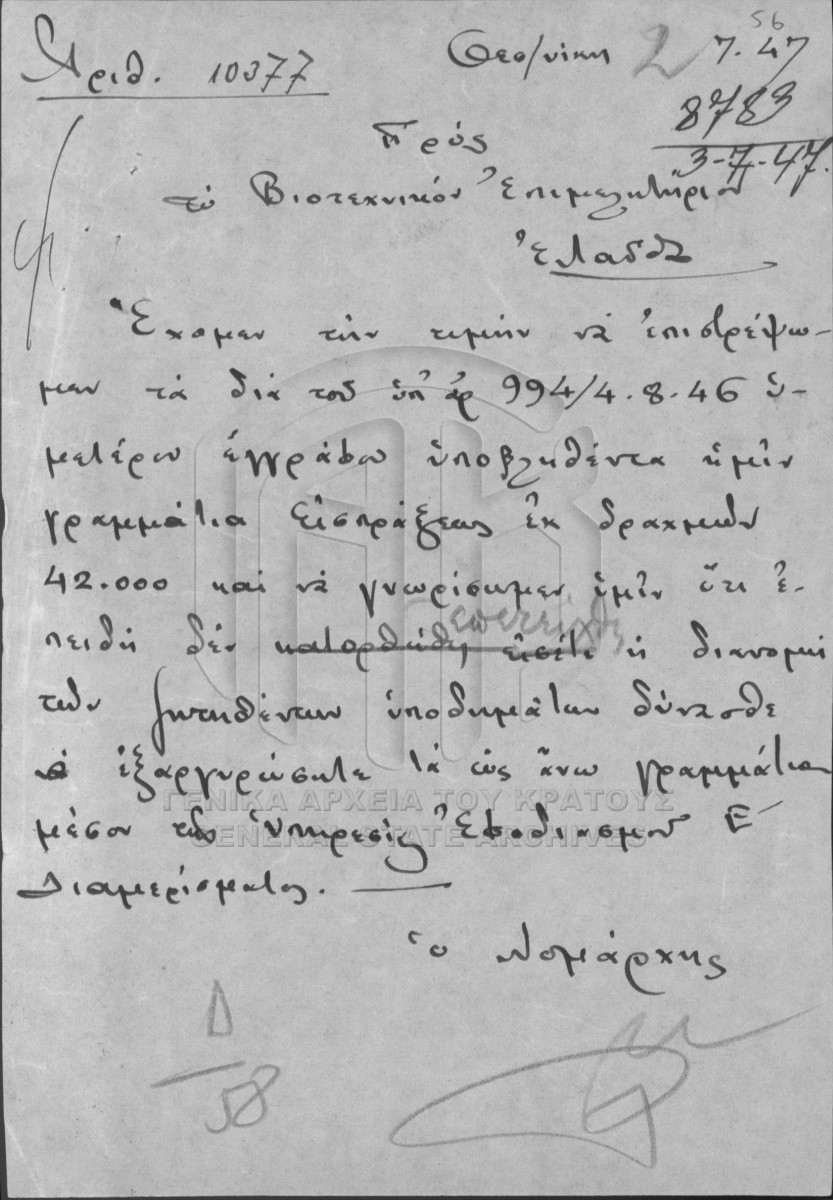 56
Ἀριθ. 10377 Θεσ/νίκη 2 7.47
8783
3-7-47.
Πρός
τό Βιοτεχνικόν Ἐπιμελητήριον
Ἐλαδδα
Ἔχομεν τήν τιμήν νά ἐπιστρέψω-
μεν τά διά τοῦ ὑπ' ἀρ 994/4.8.46 ὑ-
μετέρου ἐγγράφου ὑποβληθέντα ἡμῖν
γραμμάτια εἰσπράξεως ἐκ δραχμῶν
42.000 καί νά γνωρίσωμεν ὑμῖν ὅτι ἐ-
ἐπετεύχθη
πειδή δέν κατορθώθη εἰσέτι ἡ διανομή
τῶν ζητηθέντων ὑποδημάτων δύνασθε
νά ἐξαργυρώσητε τά ὡς ἄνω γραμμάτια
μέσον τῆς Ὑπηρεσίας Ἐφοδιασμοῦ Ε´
Διαμερίσματος.
ΓΕΝΙΚΑ ΑΡΧΕΙΑ ΤΟΥ ΚΡΑΤΟΥΣ
GENERAL STATE ARCHIVES
Ὁ Νομάρχης
Δ
58